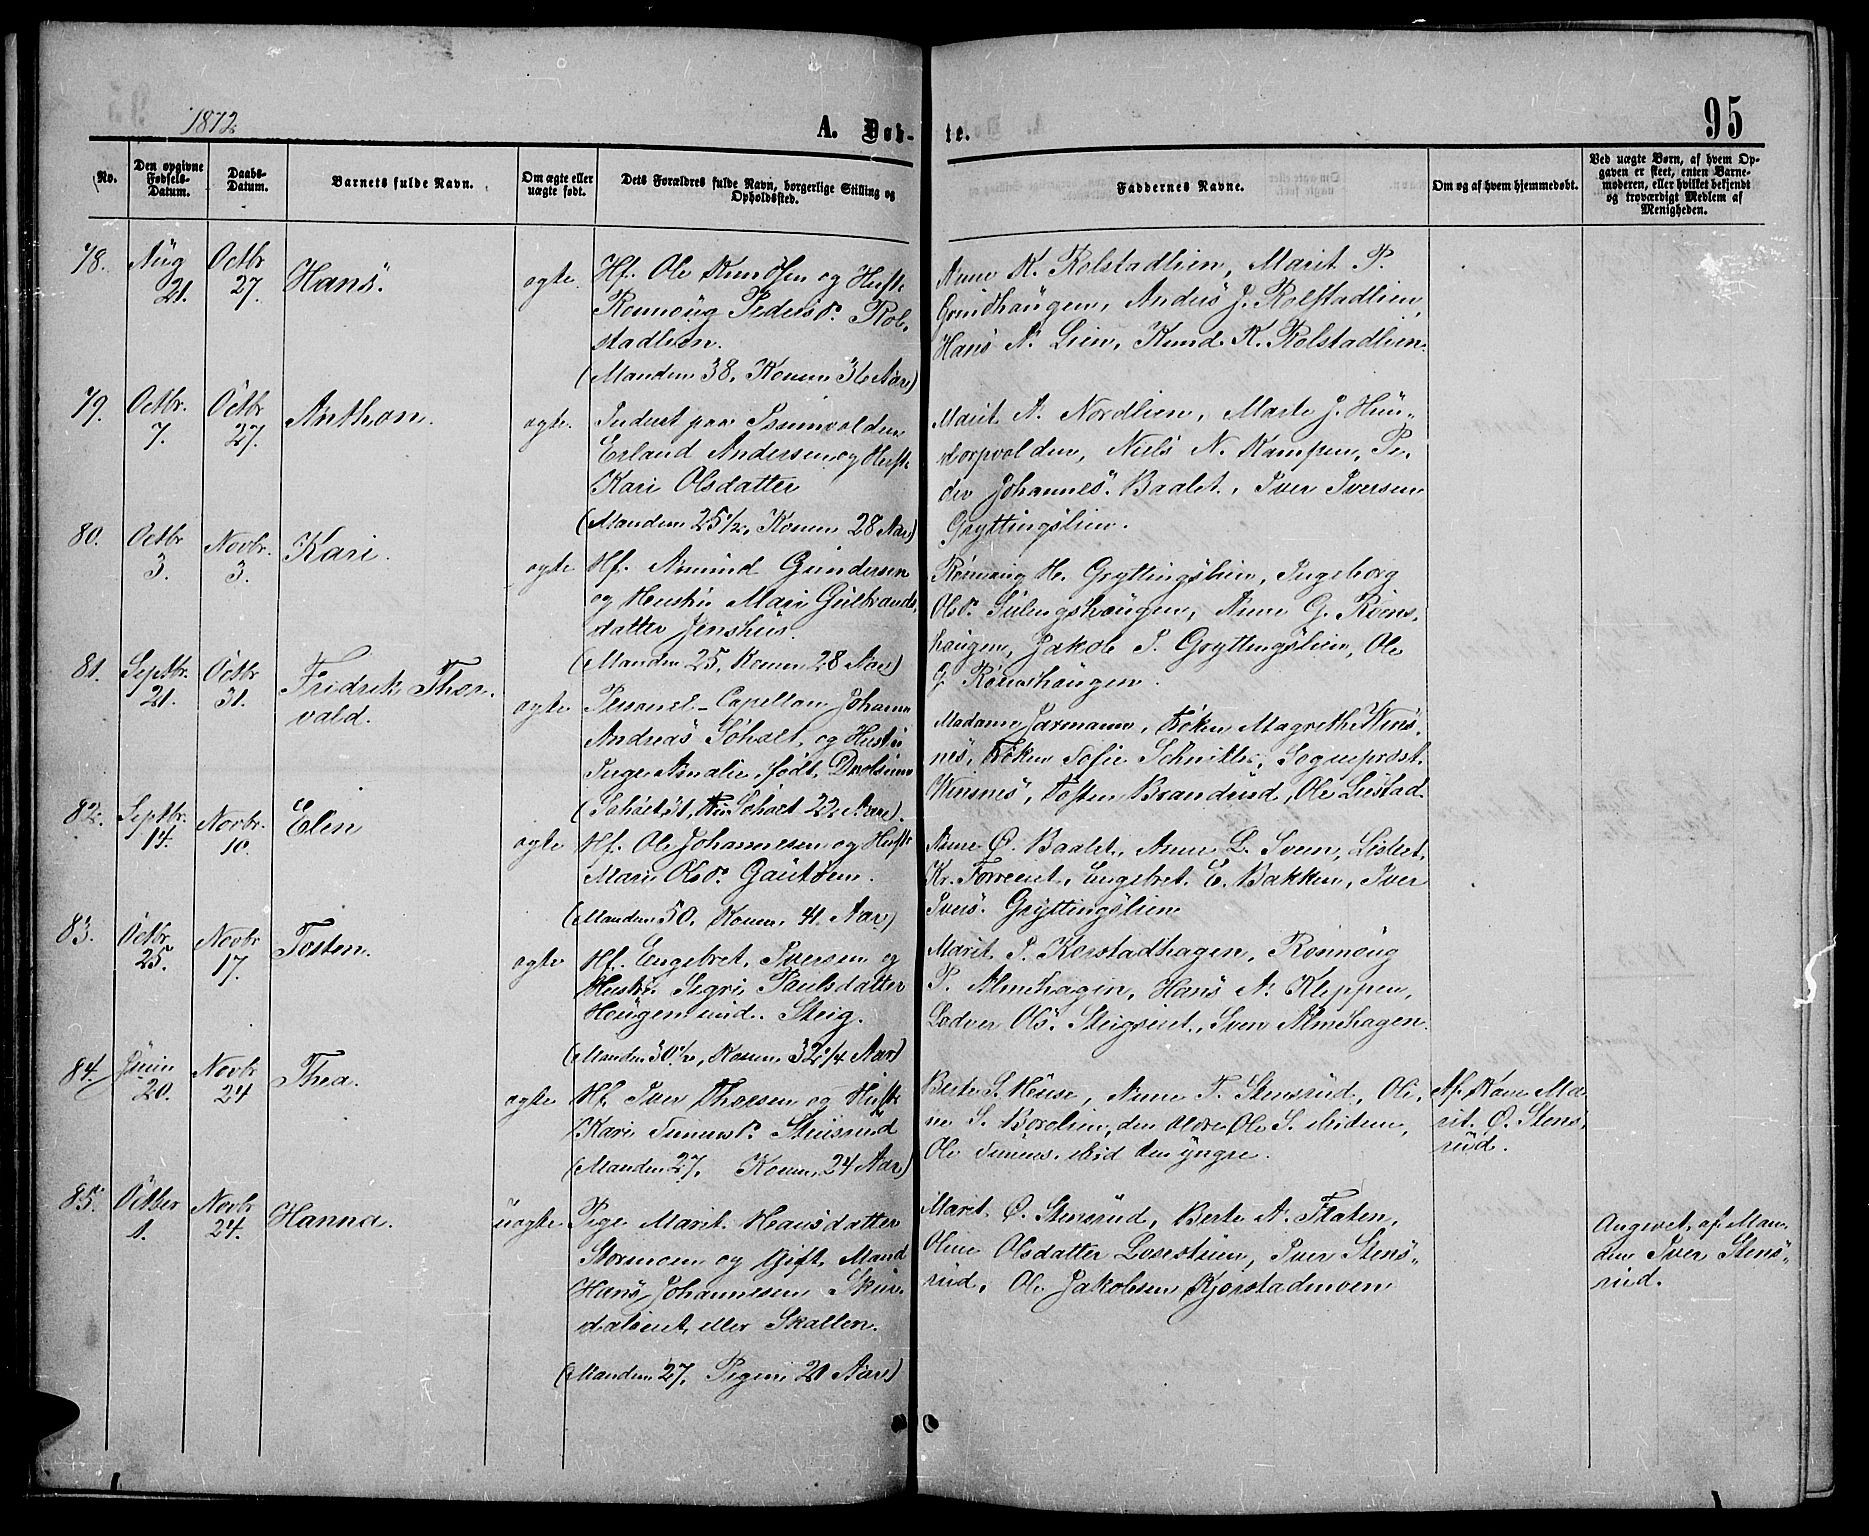 1872.
A. Døb-
te.
95
No.
Den opgivne Fødsels-Datum.
Daabs-Datum.
Barnets fulde Navn.
Om ægte eller uægte født.
Dets Forældres fulde Navn, borgerlige Stilling og Opholdssted.
Faddernes Navne.
Om og af hvem hjemmedøbt.
Ved uægte Børn, af hvem Op-
gaven er skeet, enten Barne-
moderen, eller hvilket bekjendt
og troværdigt Medlem af
Menigheden.
78. Aug 21. Octbr 27. Hans. ægte.
Hf. Ole Knudsen og Hustr.
Ronnoug Pedersd. Rol-
stadlien.
(Manden 38, Konen 36 Aar)
Anne K. Rolstadlien, Marit P.
Grindhaugen, Anders J. Rolstadlien,
Hans A. Lien, Knud K. Rolstadlien.
79. Octbr. 7. Octbr 27. Anthon. ægte.
Inderst paa
Erland Andersen og Hustr.
Kari Olsdatter
(Manden 25 1/2, Konen 28 Aar)
Marit A. Nordlien, Marte J. Hun-
dorpvolden, Niels N. Kampen, Pe-
der Johannes. Baalet, Iver Iversen
Gryttingslien.
80. Octbr 3. Novbr. 3. Kari. ægte
Hf. Amund Gundersen
og Hustru Mari Gulbrands-
datter Jenshus.
(Manden 25, Konen 28 Aar)
Ronnoug H. Gryttingslien, Ingeborg
Olsd. haugen, Anne G. Rams-
haugen, Jakob P. Gryttingslien, Ole
G. Ramshaugen.
81. Septbr. 21. Octbr 31. Fredrik Thor-
vald. ægte
Personel-Capellan Johann
Andreas Søholt og Hustru
Inge Amalie, født
(Søholt 31, Fru Søholt 22 Aar).
Madame Jaxmann, Frøken Magrethe Wins-
nes, Frøken Sofie Schnitler, Sogneprest
Winsnes, Tosten Brandrud, Ole Listad.
82. Septbr. 14. Novbr. 10. Elen ægte
Hf. Ole Johannesen og Hustr.
Mari Olsd. Gaututem.
(Manden 50, Konen 41 Aar)
Anne O. Baalet, Anne L. Sveen, Lisbet
Kr. Forreeiet, Engebret E. Bakken, Iver
Ivers. Gryttingslien
83. Octbr. 25. Novbr 17. Tosten. ægte
Hf. Engebret Iversen og
Hustru Segri Paulsdatter
Haugen und. Steig.
(Manden 30 1/2, Konen 32 1/4 Aar)
Marit P. Korstadhagen, Ronnoug
P. Almehagen, Hans A. Kleppen,
Lodver Ols. Steigseiet, Sven Almehagen.
84. Juni 20. Novbr 24 Thea. ægte
Hf. Iver Thorsen og Hustr.
Kari d. Stensrud
(Manden 27, Konen 24 Aar)
Berte S. Huse, Anne T. Stensrud, Oli-
ne S. Borolien, den ældre Ole S.
Ole den yngre.
Af Kone Ma-
rit O. Stens-
rud.
85. October 1. Novbr 24. Hanna. uægte
Pige Marit Hansdatter
Stormoen og Gift Mand
Hans Johannesen Skur-
dalseiet eller Skallen.
(Manden 27, Pigen 20 Aar)
Marit O. Stensrud, Berte A. Flaten,
Oline Olsdatter Losestuen, Iver Stens-
rud, Ole Jakobsen Kjorstadmoen
Angivet af Man-
den Iver Stens-
rud.